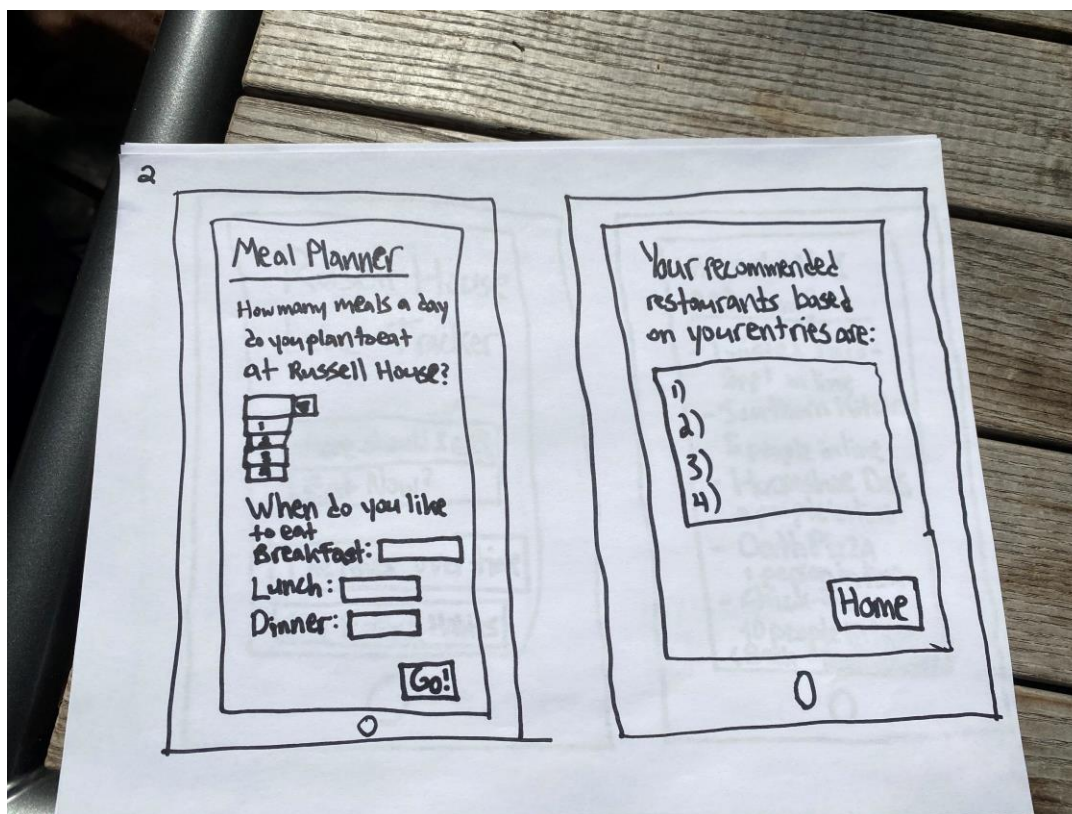 2
Meal Planner
How many meals a day
do you plan to eat
at Russell House?
1
2
3
4
When do you like
to eat
Breakfast:
Lunch:
Dinner:
Go!
Your recommended
restaurants based
on your entries are:
1)
2)
3)
4)
Home